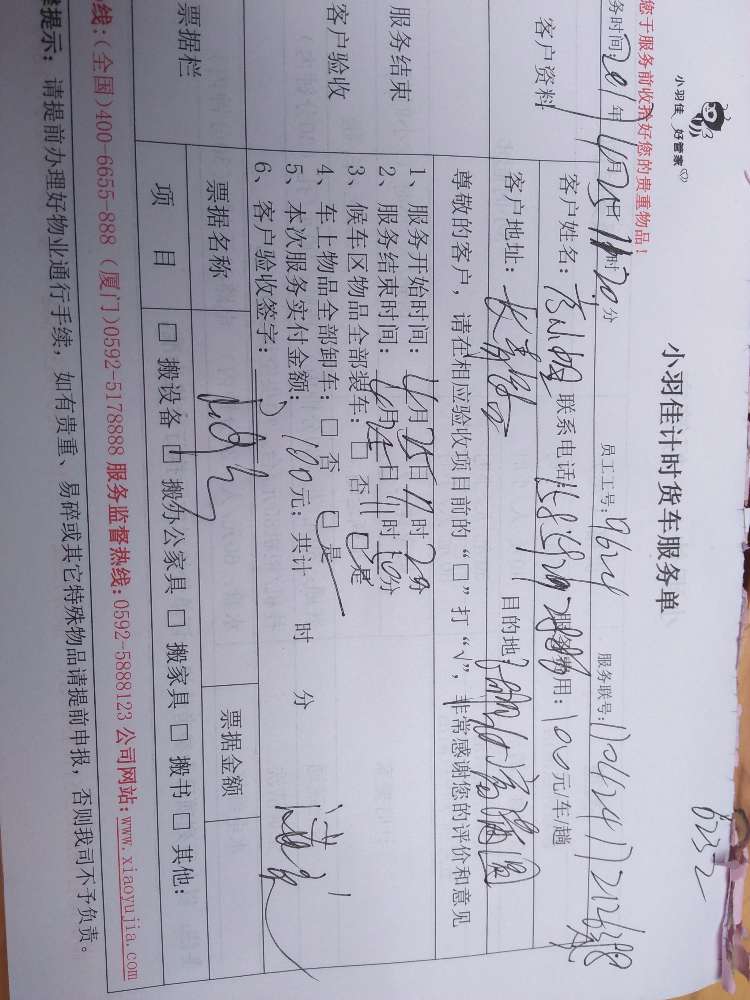 小羽佳 好管家
小羽佳计时货车服务单
8232
您于服务前收拾好您的贵重物品！
务时间: 年4月25日11时20分 员工工号: 9624 服务联号:
客户资料
客户姓名: 联系电话: 服务费用: 100元/车/趟
客户地址: 目的地:
尊敬的客户，请在相应验收项目前的“□”打“√”，非常感谢您的评价和意见
服务结束
客户验收
1、服务开始时间: 4月25日11时20分
2、服务结束时间: 4月25日11时50分
3、候车区物品全部装车: □ 否 □ 是
4、车上物品全部卸车: □ 否 □ 是
5、本次服务实付金额: 100元; 共计 时 分
6、客户验收签字:
票据栏
票据名称 票据金额
项 目 □ 搬设备 □ 搬办公家具 □ 搬家具 □ 搬书 □ 其他:
线:(全国)400-6655-888 (厦门)0592-5178888 服务监督热线:0592-5888123 公司网站:www.xiaoyujia.com
提示: 请提前办理好物业通行手续，如有贵重、易碎或其它特殊物品请提前申报，否则我司不予负责。